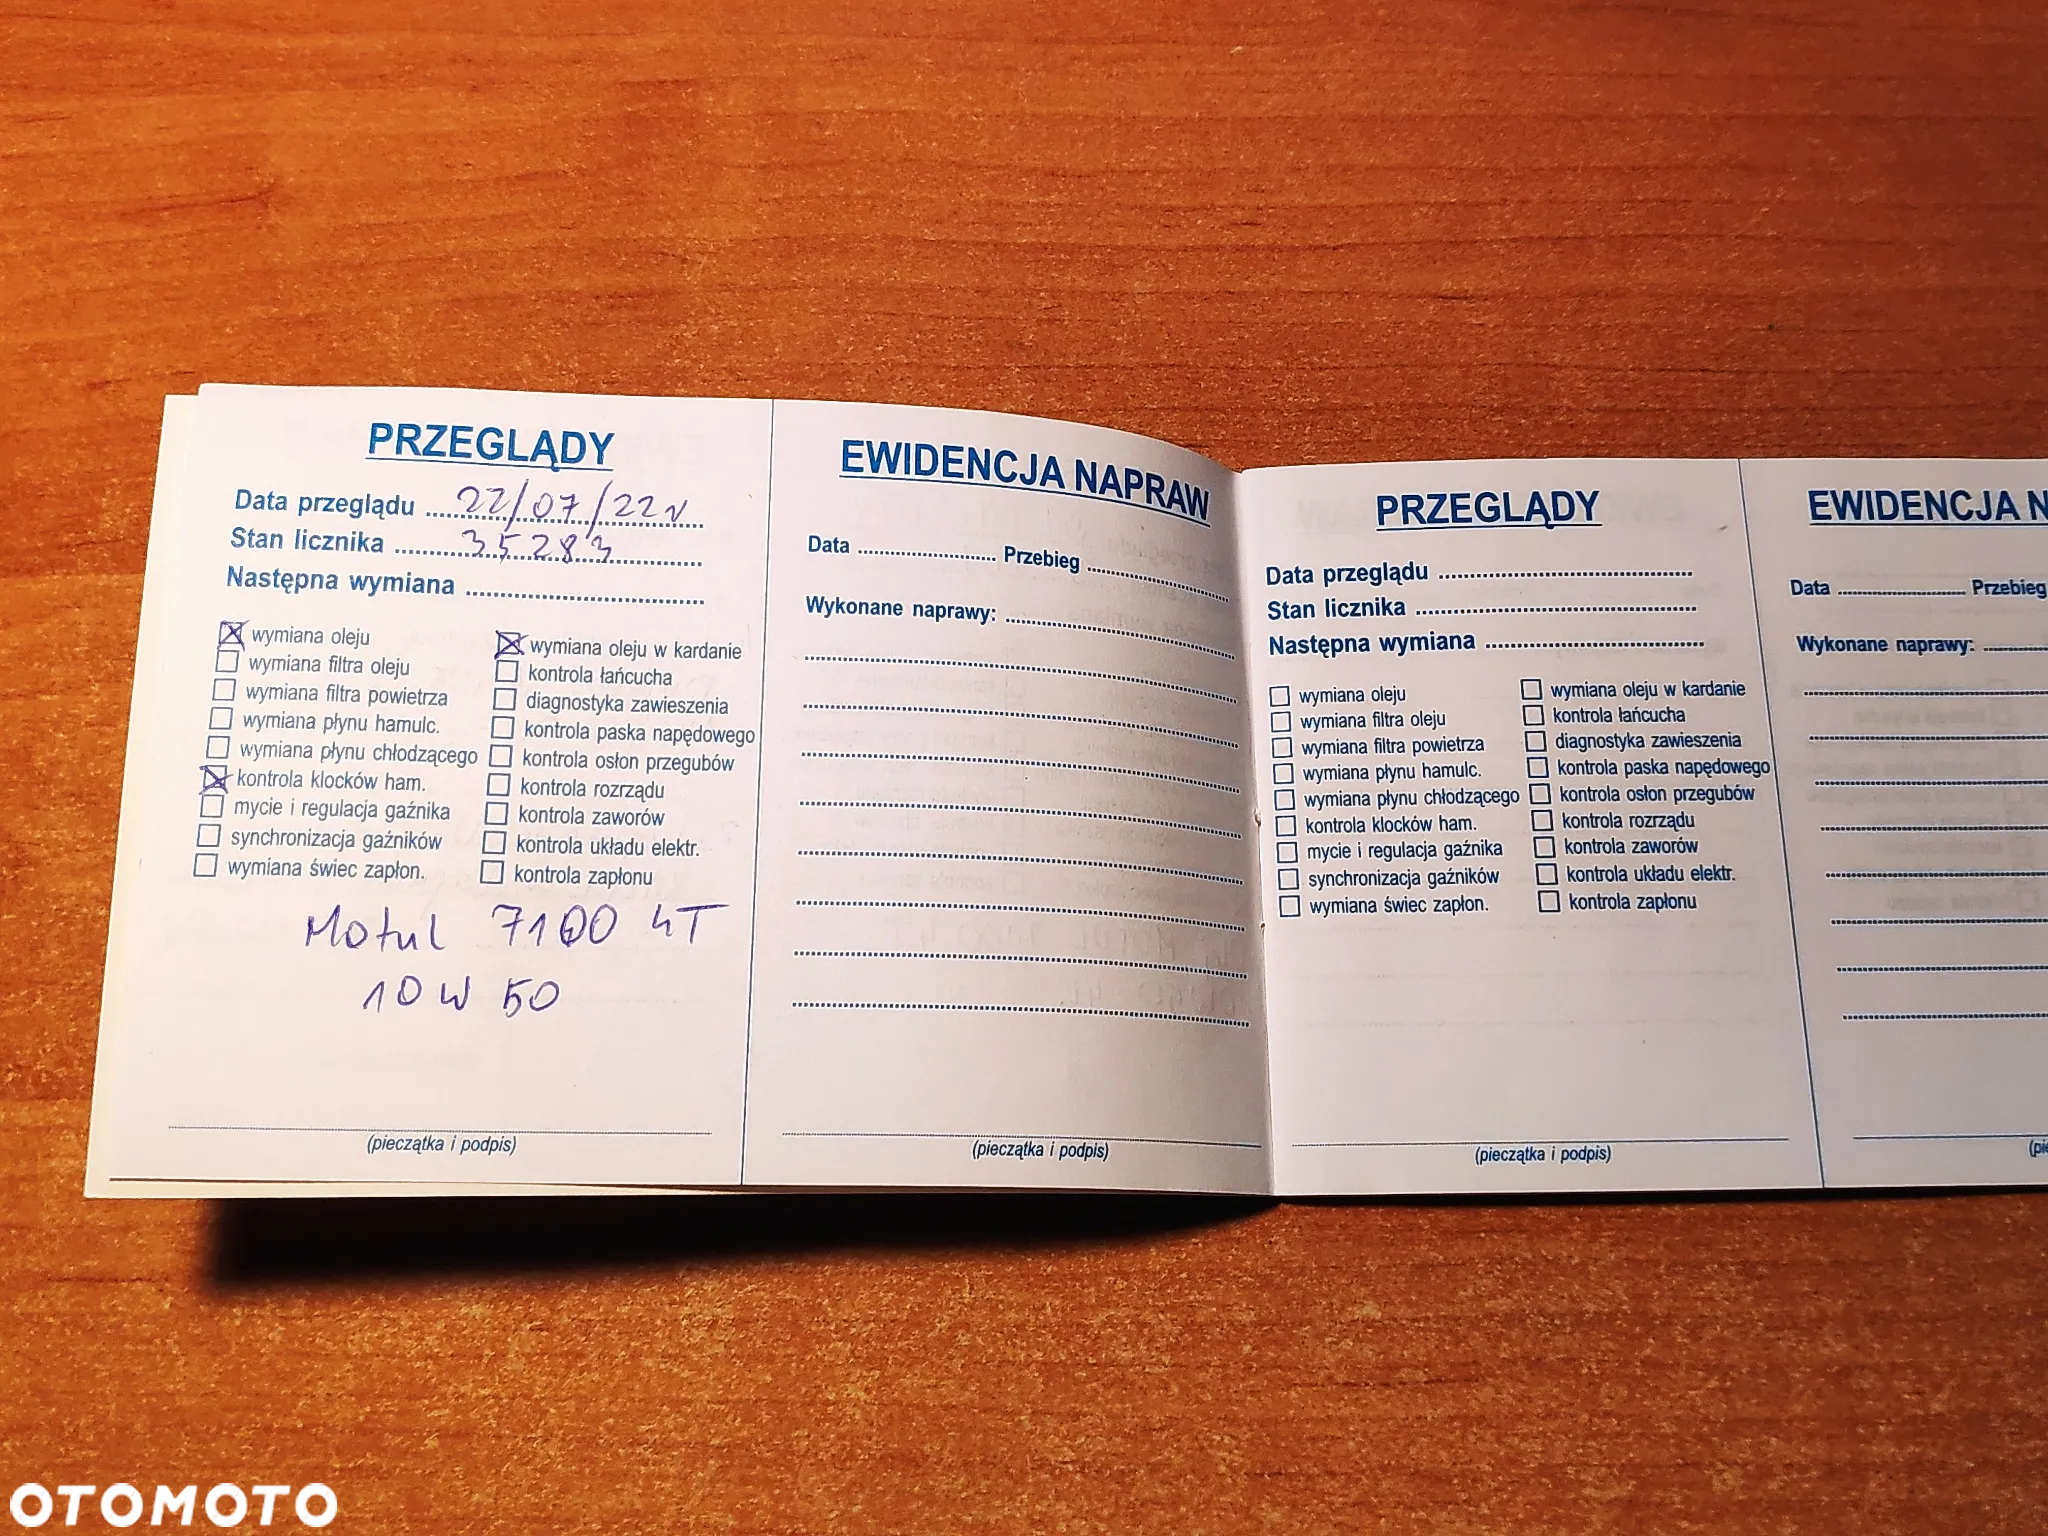 PRZEGLĄDY
Data przeglądu 22/07/22r
Stan licznika 35283
Następna wymiana
wymiana oleju
wymiana filtra oleju
wymiana filtra powietrza
wymiana płynu hamulc.
wymiana płynu chłodzącego
kontrola klocków ham.
mycie i regulacja gaźnika
synchronizacja gaźników
wymiana świec zapłon.
wymiana oleju w kardanie
kontrola łańcucha
diagnostyka zawieszenia
kontrola paska napędowego
kontrola osłon przegubów
kontrola rozrządu
kontrola zaworów
kontrola układu elektr.
kontrola zapłonu
Motul 7100 4T
10W50
(pieczątka i podpis)
EWIDENCJA NAPRAW
Data Przebieg
Wykonane naprawy:
(pieczątka i podpis)
PRZEGLĄDY
Data przeglądu
Stan licznika
Następna wymiana
wymiana oleju
wymiana filtra oleju
wymiana filtra powietrza
wymiana płynu hamulc.
wymiana płynu chłodzącego
kontrola klocków ham.
mycie i regulacja gaźnika
synchronizacja gaźników
wymiana świec zapłon.
wymiana oleju w kardanie
kontrola łańcucha
diagnostyka zawieszenia
kontrola paska napędowego
kontrola osłon przegubów
kontrola rozrządu
kontrola zaworów
kontrola układu elektr.
kontrola zapłonu
(pieczątka i podpis)
EWIDENCJA N
Data Przebieg
Wykonane naprawy:
(pie
OTOMOTO